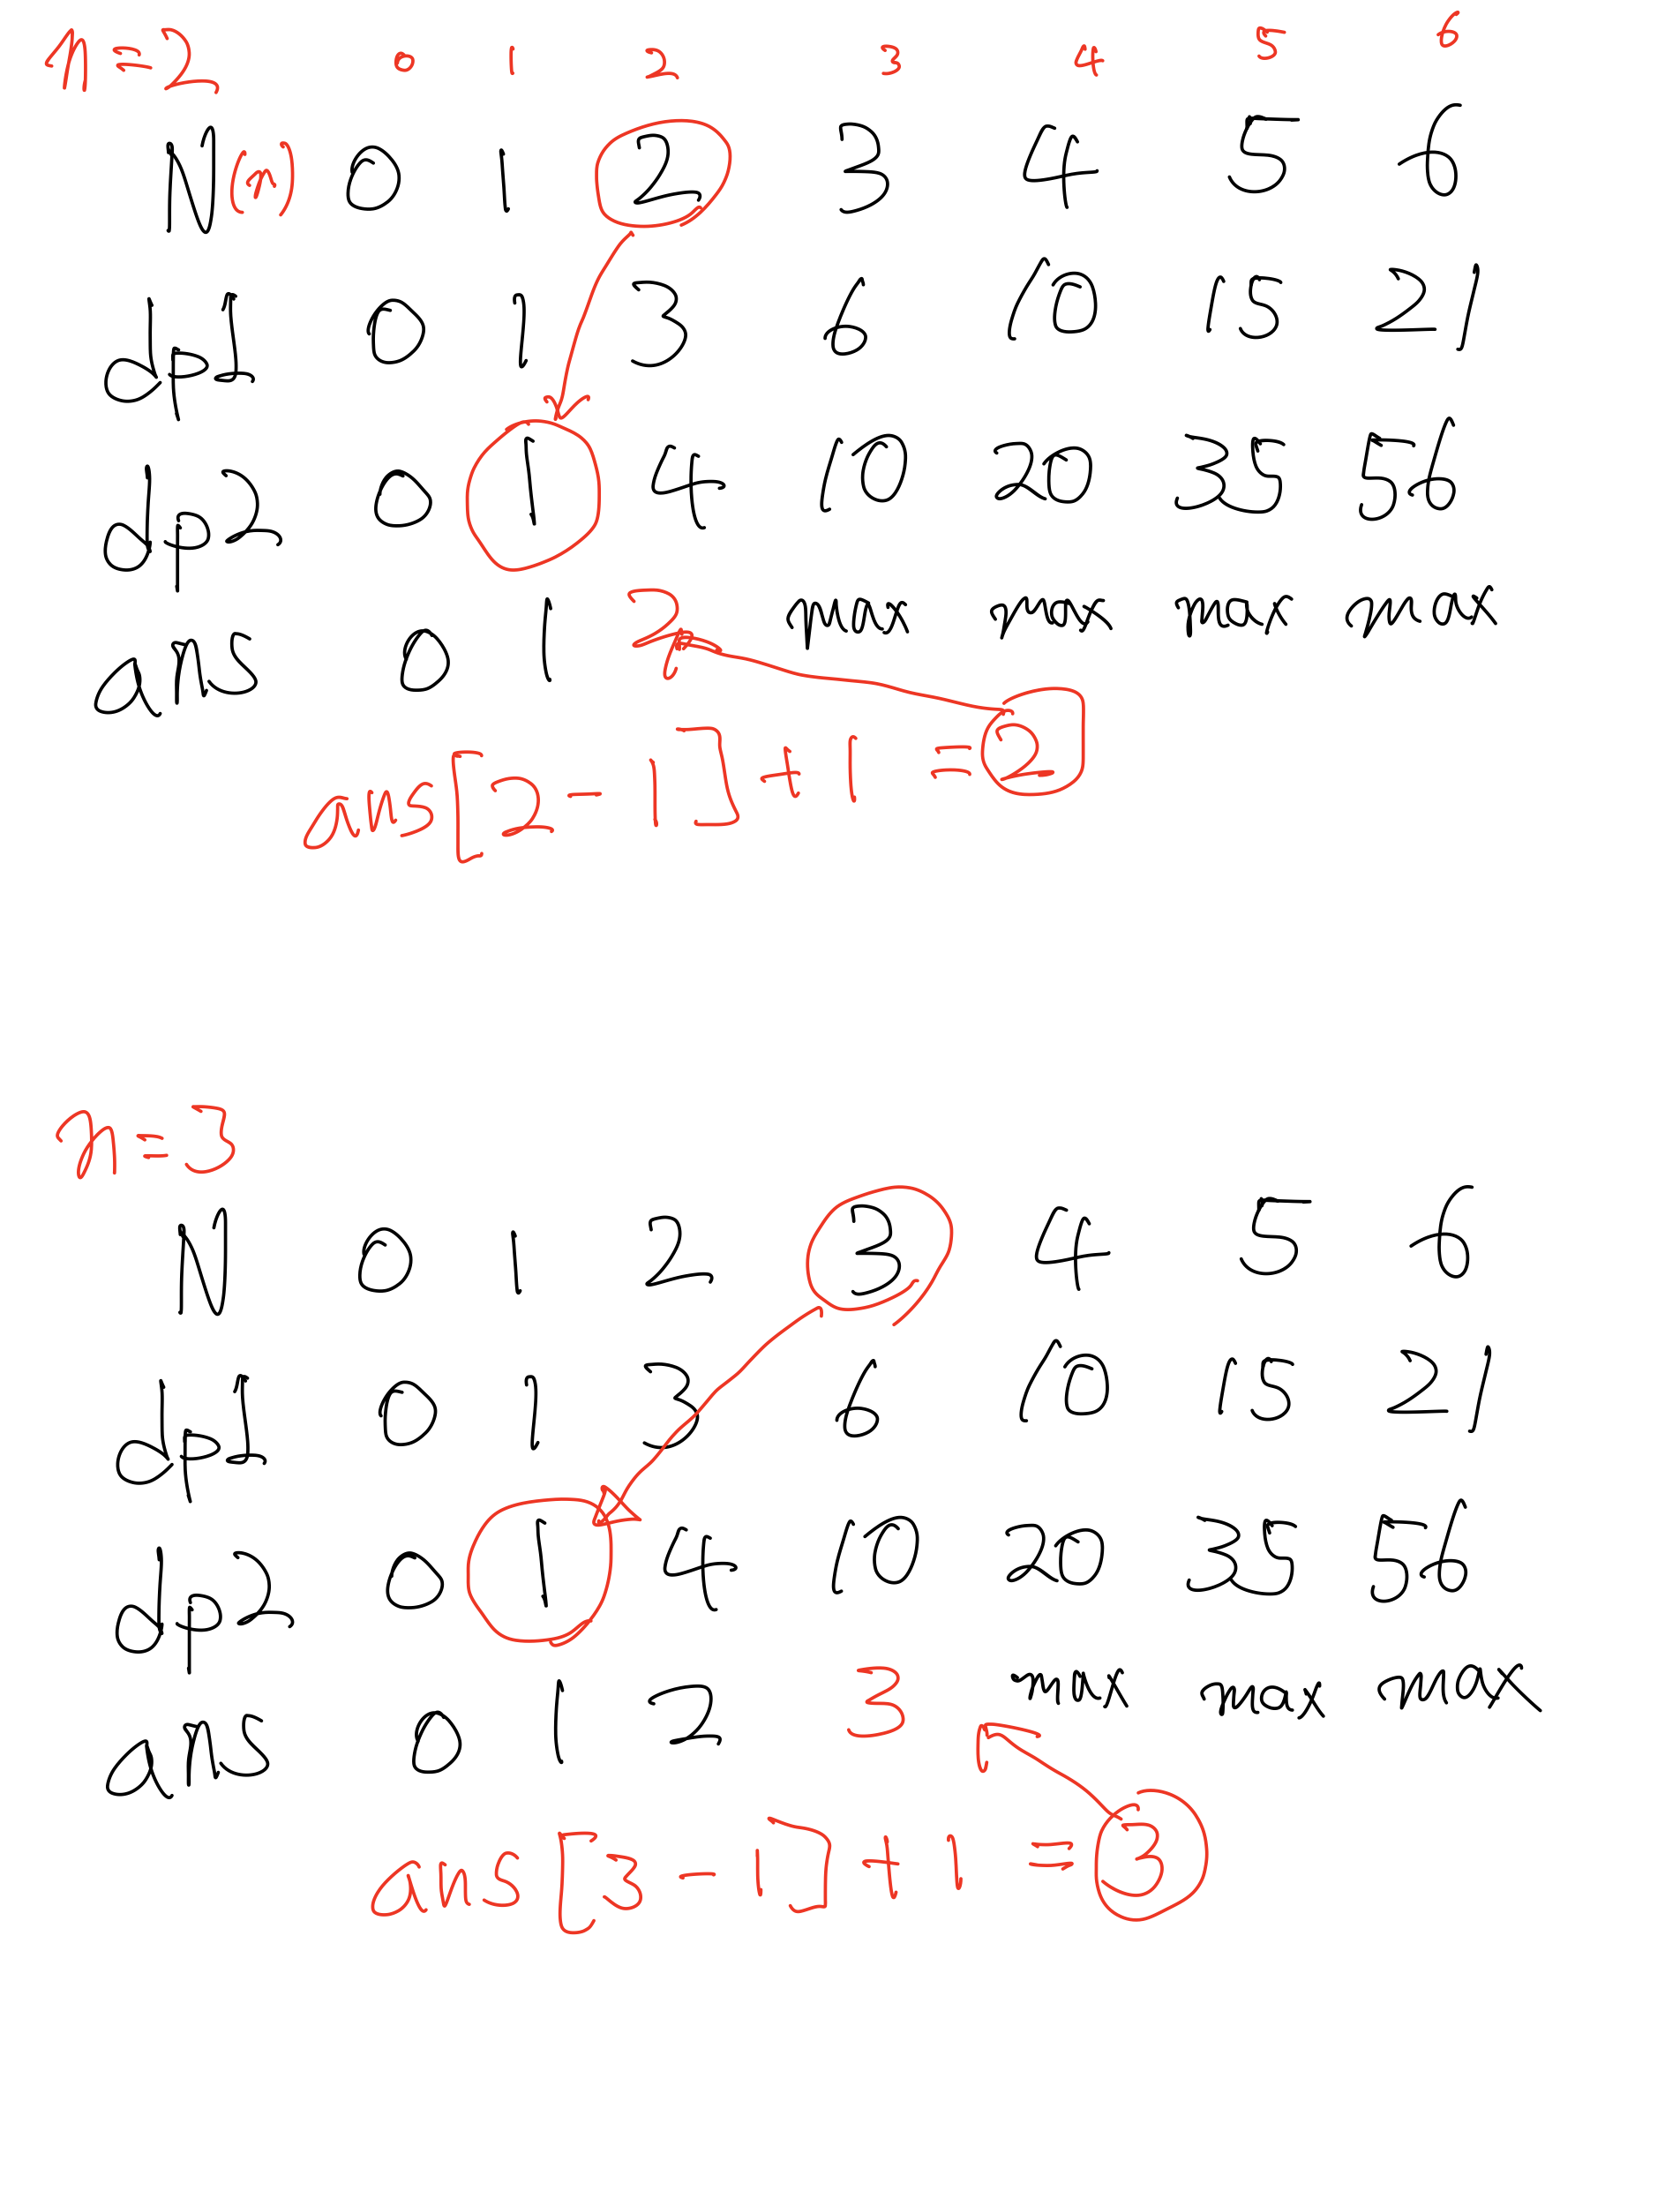 n=2 0 1 2 3 4 5 6
N(n) 0 1 2 3 4 5 6
dp1 0 1 3 6 10 15 21
dp2 0 1 4 10 20 35 56
ans 0 1 2 max max max max
ans[2-1]+1=2
n=3
N 0 1 2 3 4 5 6
dp1 0 1 3 6 10 15 21
dp2 0 1 4 10 20 35 56
ans 0 1 2 3 max max max
ans[3-1]+1=3